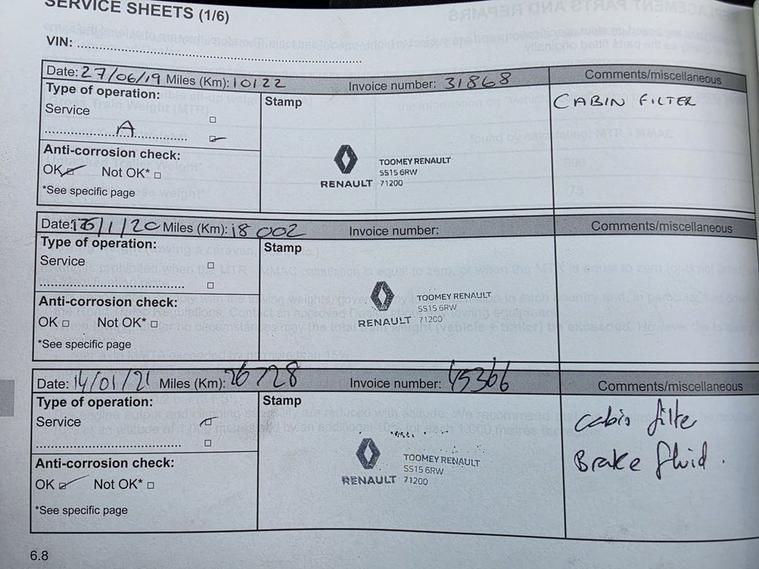 SERVICE SHEETS (1/6)
VIN:
Date: 27/06/19 Miles (Km): 10122 Invoice number: 31868 Comments/miscellaneous
Type of operation: Stamp CABIN FILTER
Service
A
Anti-corrosion check: TOOMEY RENAULT
OK Not OK* SS15 6RW
RENAULT 71200
*See specific page
Date: /1/20 Miles (Km): 18 002 Invoice number: Comments/miscellaneous
Type of operation: Stamp
Service
Anti-corrosion check: TOOMEY RENAULT
SS15 6RW
OK Not OK* RENAULT 71200
*See specific page
Date: 14/01/21 Miles (Km): 26728 Invoice number: 45366 Comments/miscellaneous
Type of operation: Stamp Cabin filte
Service
Anti-corrosion check: TOOMEY RENAULT Brake fluid.
SS15 6RW
OK Not OK* RENAULT 71200
*See specific page
6.8